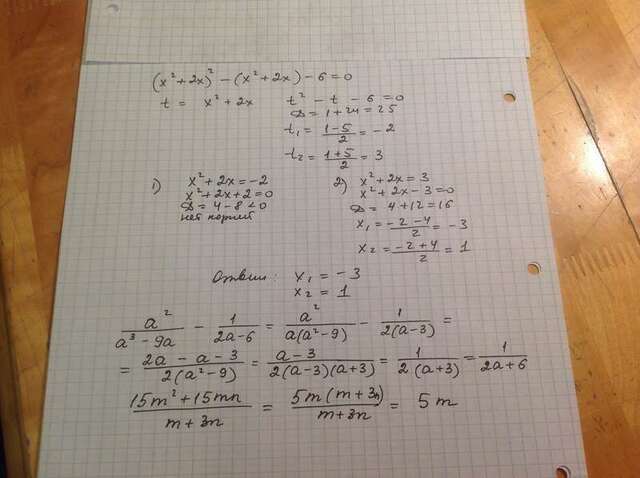 (x² + 2x)² - (x² + 2x) - 6 = 0
t = x² + 2x   t² - t - 6 = 0
D = 1 + 24 = 25
t₁ = (1-5)/2 = -2
t₂ = (1+5)/2 = 3
1) x² + 2x = -2
x² + 2x + 2 = 0
D = 4 - 8 < 0
нет корней
2) x² + 2x = 3
x² + 2x - 3 = 0
D = 4 + 12 = 16
x₁ = (-2-4)/2 = -3
x₂ = (-2+4)/2 = 1
Ответ: x₁ = -3
x₂ = 1
a²/(a³ - 9a) - 1/(2a-6) = a²/(a(a²-9)) - 1/(2(a-3)) =
= (2a - a - 3)/(2(a²-9)) = (a-3)/(2(a-3)(a+3)) = 1/(2(a+3)) = 1/(2a+6)
(15m² + 15mn)/(m + 3n) = (5m(m+3n))/(m+3n) = 5m